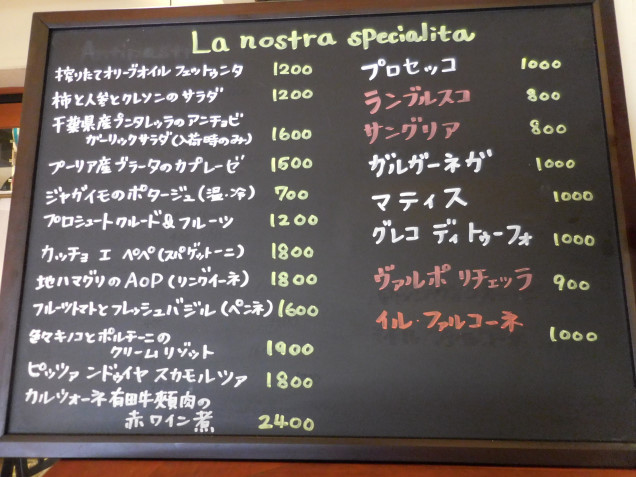 La nostra specialita
搾りたてオリーブオイル フェットゥンタ 1200
柿と人参とクレソンのサラダ 1200
千葉県産プンタレッラのアンチョビ
ガーリックサラダ(入荷時のみ) 1600
プーリア産ブラータのカプレーゼ 1500
ジャガイモのポタージュ(温・冷) 700
プロシュートクルード&フルーツ 1200
カッチョ エ ペペ(スパゲットーニ) 1800
地ハマグリのAOP(リングイーネ) 1800
フルーツトマトとフレッシュバジル(ペンネ) 1600
色々キノコとポルチーニの
クリームリゾット 1900
ピッツァ ンドゥイヤ スカモルツァ 1800
カルツォーネ有田牛頬肉の
赤ワイン煮 2400
プロセッコ 1000
ランブルスコ 800
サングリア 800
ガルガーネガ 1000
マティス 1000
グレコ ディ トゥーフォ 1000
ヴァルポリチェッラ 900
イル・ファルコーネ 1000